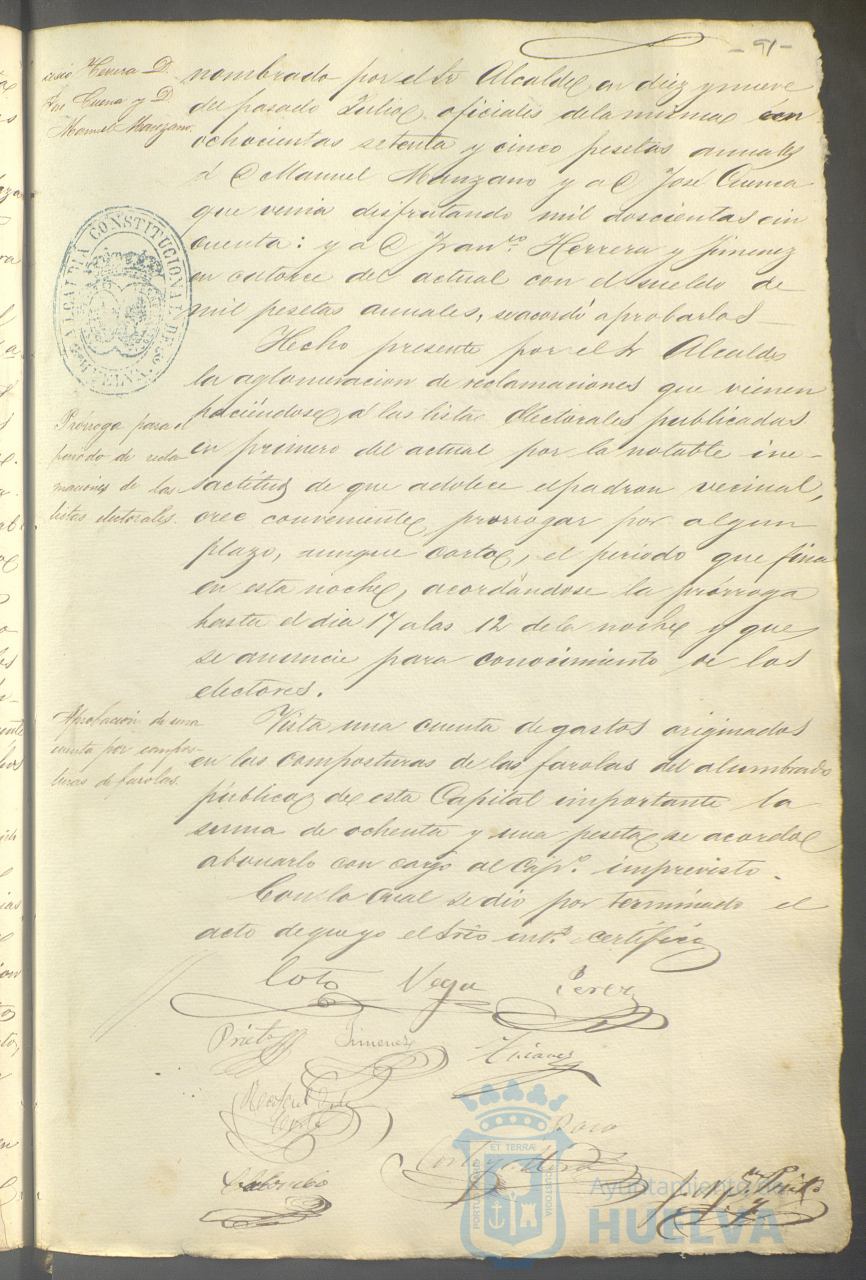 - 91 -
cisco Herrera D.
José Cuenca y D.
Manuel Manzano.
nombrado por el Sr Alcalde en diez y nueve
del pasado Julio, oficiales de la misma con
ochocientas setenta y cinco pesetas anuales
á D Manuel Manzano y a D José Cuenca
que venia disfrutando mil doscientas cin
cuenta: y a D Fran.co Herrera y Jimenez
en catorce del actual con el sueldo de
mil pesetas anuales, se acordó aprobarlos
ALCALDIA CONSTITUCIONAL DE
Hecho presente por el Sr Alcalde
la aglomeracion de reclamaciones que vienen
haciéndose á las listas electorales publicadas
Prórroga para el
periodo de recla
maciones de las
listas electorales.
en primero del actual por la notable ine-
sactitud de que adolece el padron vecinal,
cree conveniente prorrogar por algun
plazo, aunque corto, el periodo que fina
en esta noche, acordándose la prórroga
hasta el dia 17 a las 12 de la noche y que
se anuncie para conocimiento de los
electores.
Aprobación de una
cuenta por compos-
turas de farolas.
Vista una cuenta de gastos originados
en las composturas de las farolas del alumbrado
público de esta Capital importante la
suma de ochenta y una pesetas se acordó
abonarlo con cargo al Cap.o imprevisto.
Con lo cual se dió por terminado el
acto de que yo el Srio int.o certifico
Coto Vega Perez
Prieto Jimenez
Ayuntamiento de
HUELVA
PORTUS MARIS ET TERRÆ CUSTODIA